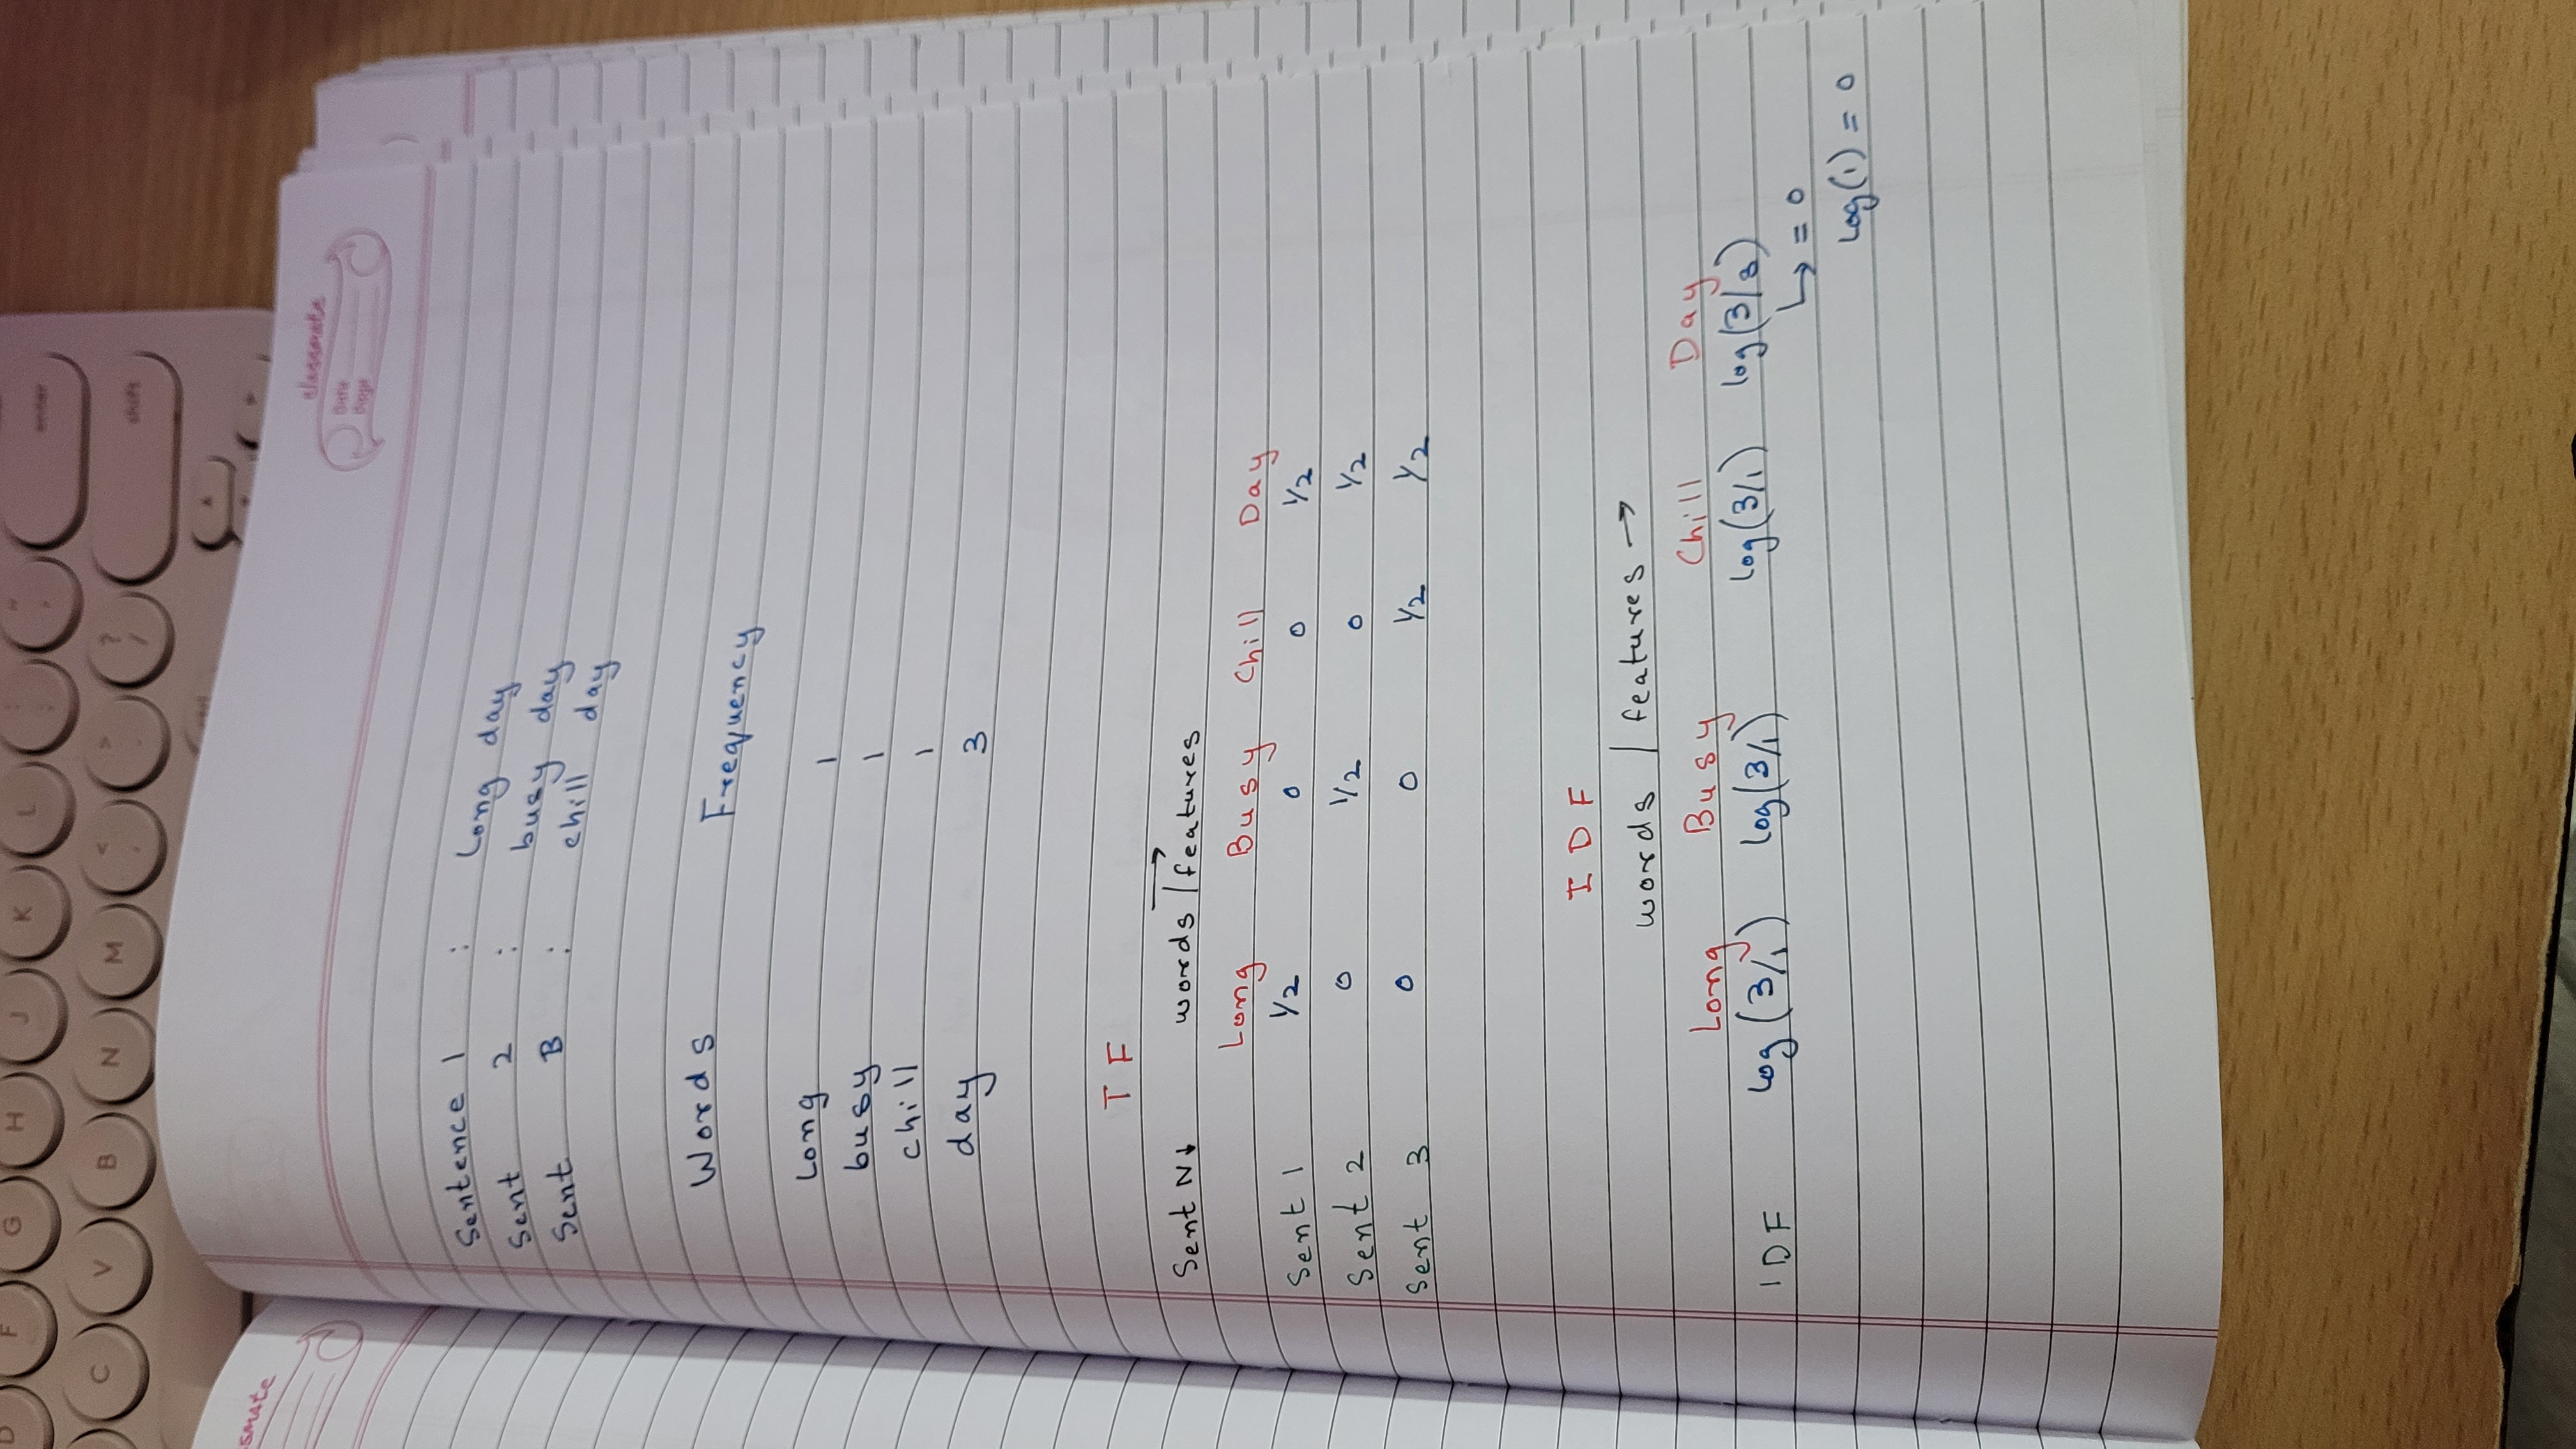 D F G H J K L : ; " ' enter
C V B N M < , > . ? / shift
smate
classmate
Date
Page
Sentence 1 : Long day
Sent 2 : busy day
Sent B : chill day
Words Frequency
Long 1
busy 1
chill 1
day 3
TF
Sent N↓ words / features →
Long Busy Chill Day
Sent 1 1/2 0 0 1/2
Sent 2 0 1/2 0 1/2
Sent 3 0 0 1/2 1/2
IDF
words / features →
Long Busy Chill Day
IDF log(3/1) log(3/1) log(3/1) log(3/3)
↳ = 0
log(1) = 0